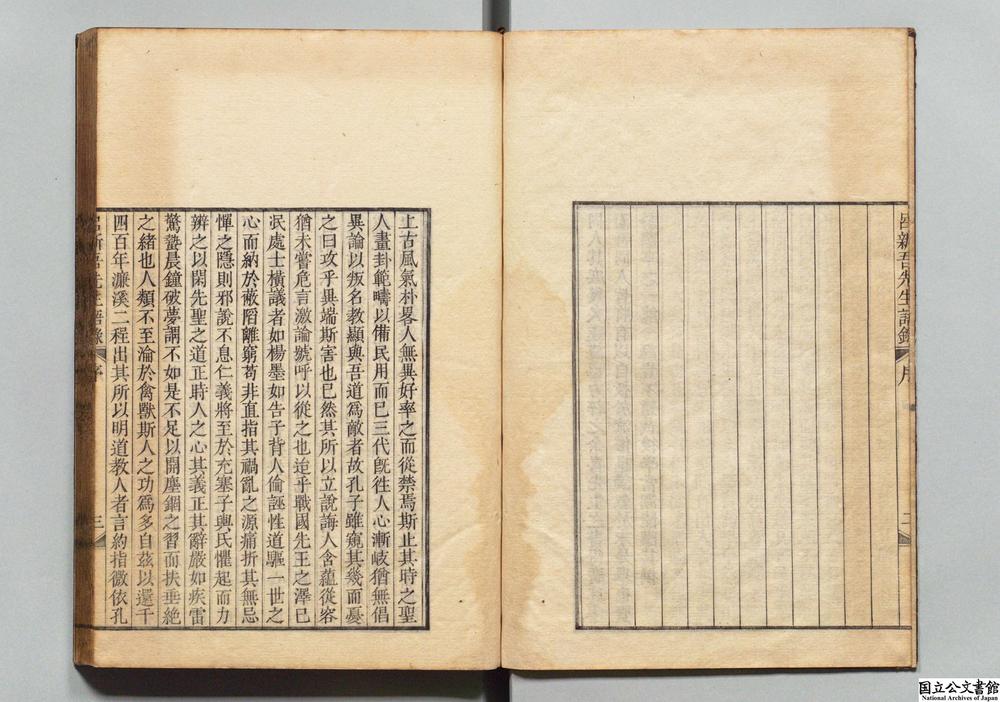 呂新吾先生語錄
序
二
上古風氣朴畧人無異好率之而從禁焉斯止其時之聖
人畫卦範疇以備民用而已三代旣徃人心漸岐猶無倡
異論以叛名教顯與吾道爲敵者故孔子雖窺其幾而憂
之曰攻乎異端斯害也已然其所以立說誨人含蘊從容
猶未嘗危言激論號呼以從之也迨乎戰國先王之澤已
泯處士橫議者如楊墨如告子背人倫誣性道驅一世之
心而納於蔽陷離窮苟非直指其禍亂之源痛折其無忌
憚之隱則邪說不息仁義將至於充塞子輿氏懼起而力
辨之以閑先聖之道正時人之心其義正其辭嚴如疾雷
驚蟄晨鐘破夢謂不如是不足以開塵錮之習而扶垂絶
之緒也人類不至淪於禽獸斯人之功爲多自茲以還千
四百年濂溪二程出其所以明道教人者言約指微依孔
呂新吾先生語錄
序
三
国立公文書館
National Archives of Japan